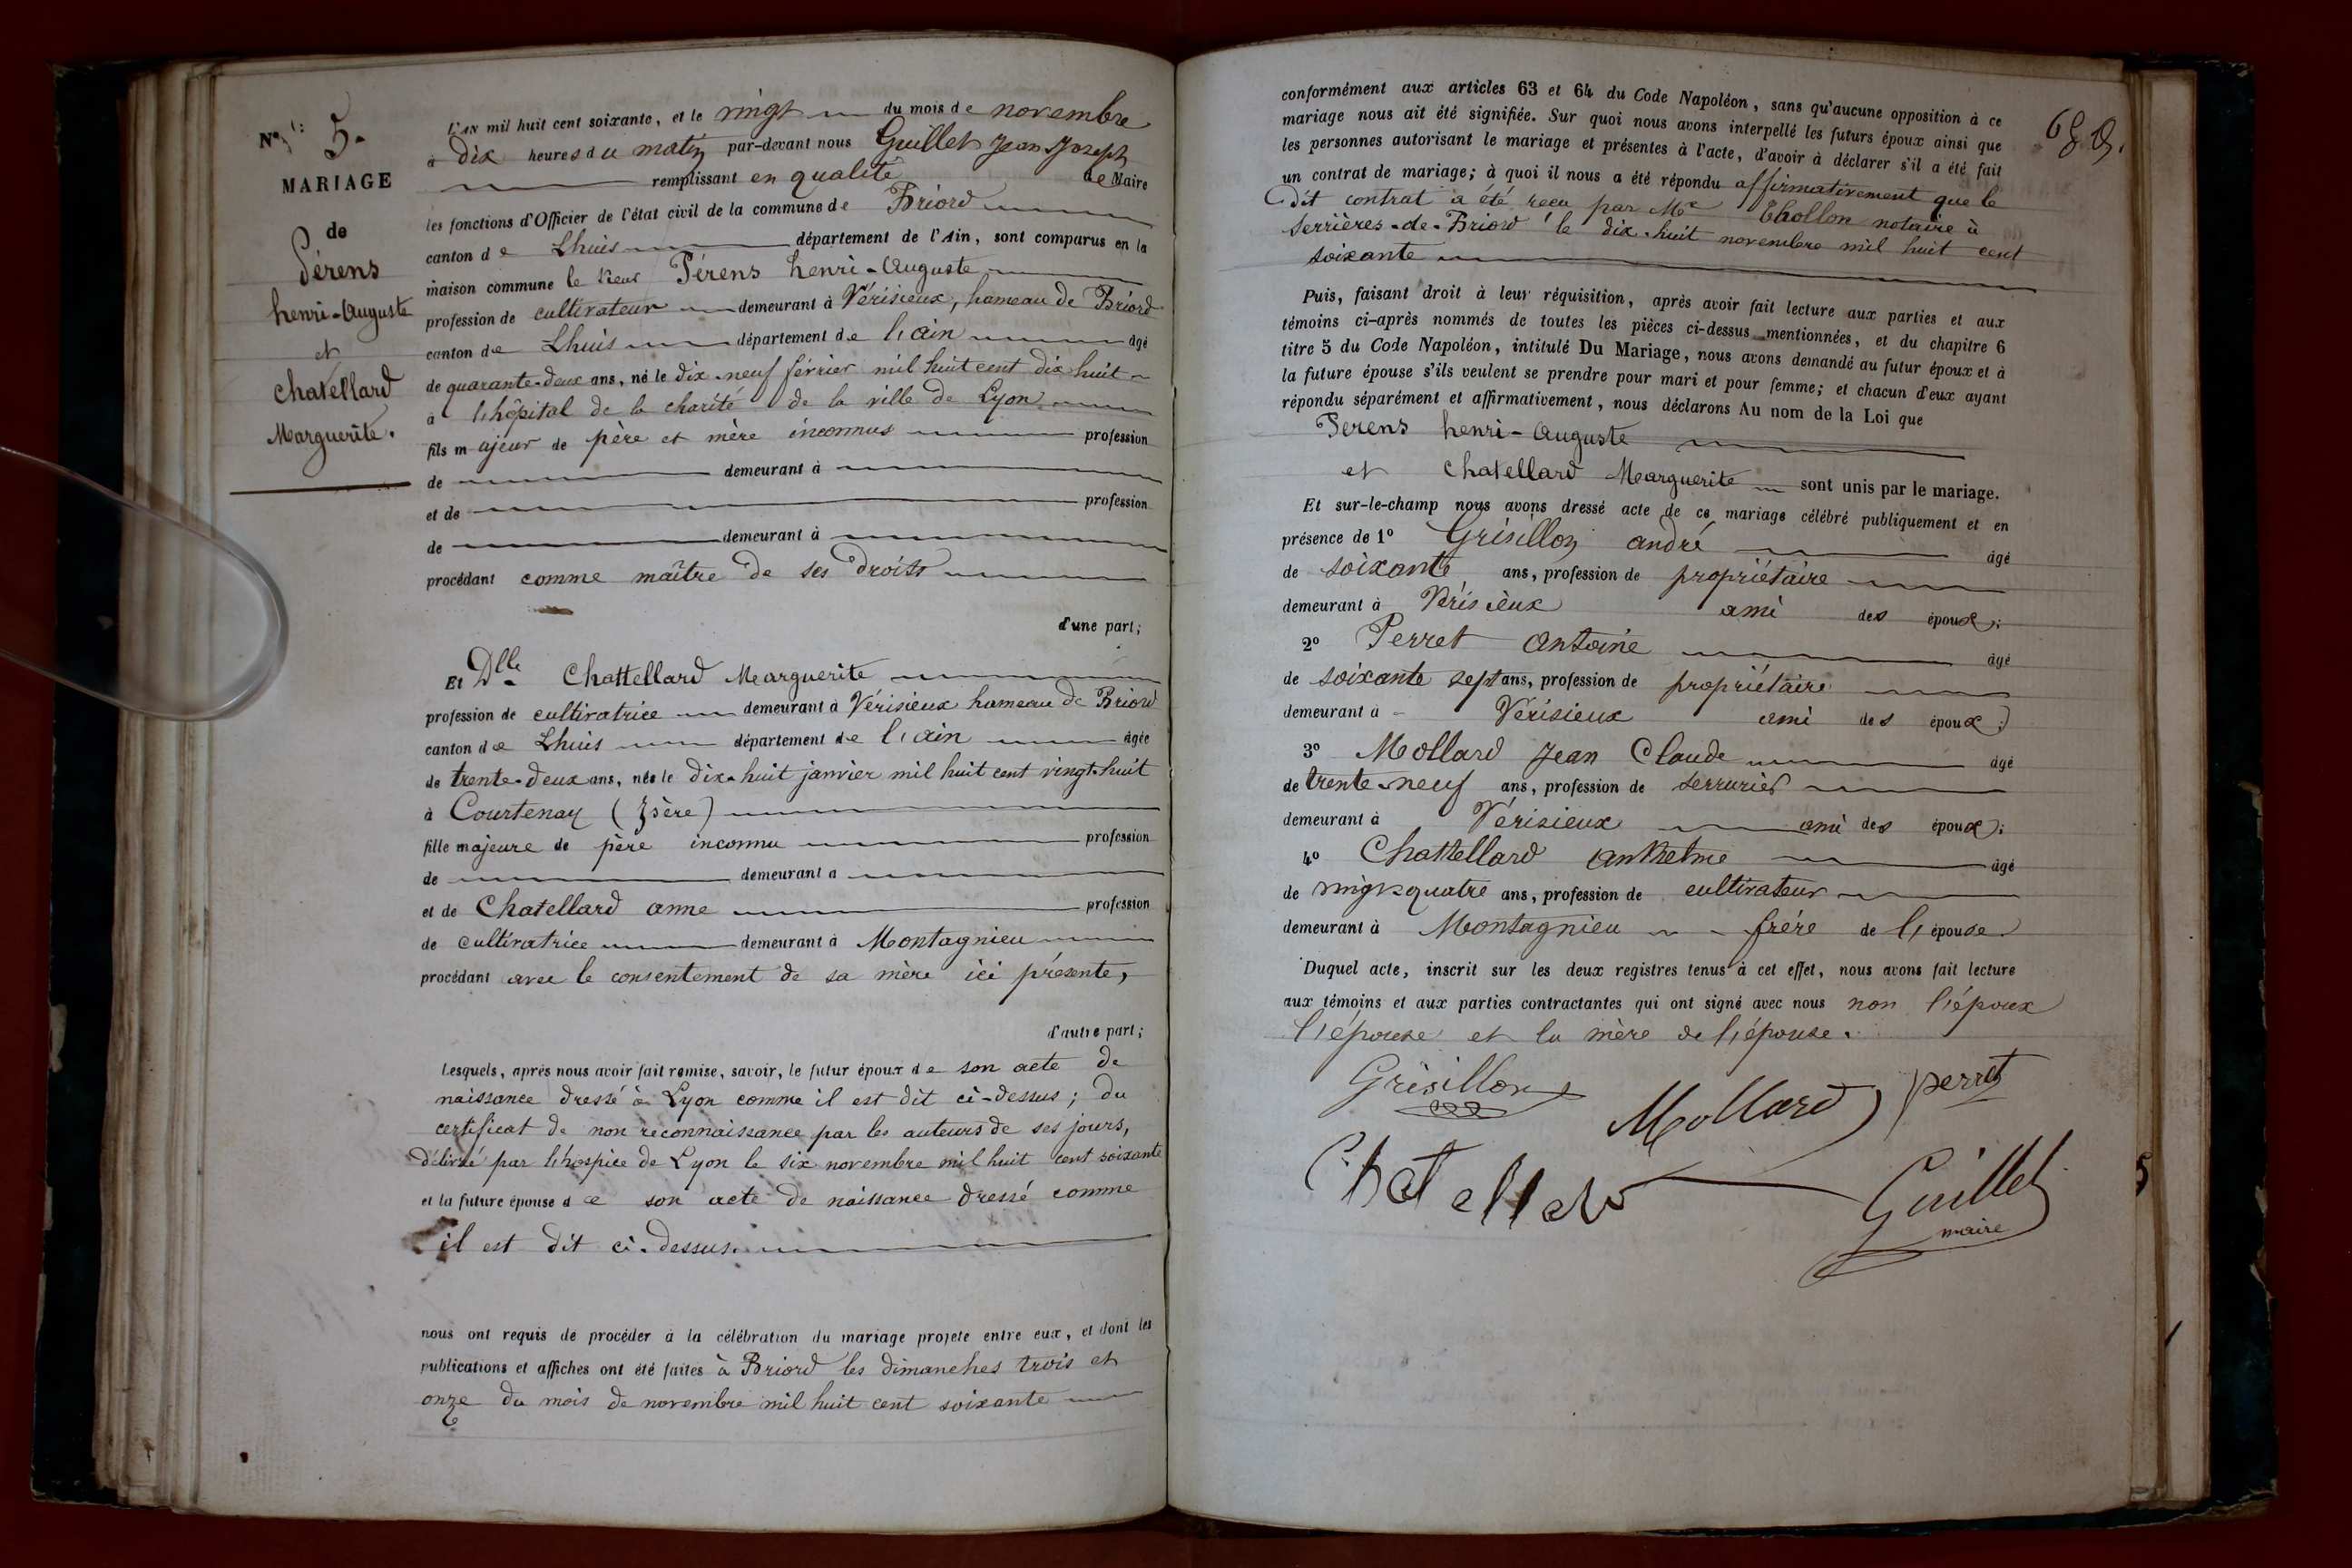 N.° 5.
MARIAGE
de
Pérens
henri-Auguste
et
Chatellard
Marguerite.
L'AN mil huit cent soixante, et le vingt du mois de novembre
à dix heures du matin par-devant nous Guillet Jean Joseph
remplissant en qualité de Maire
les fonctions d'Officier de l'état civil de la commune de Briord
canton de Lhuis département de l'Ain, sont comparus en la
maison commune le sieur Pérens henri-Auguste
profession de cultivateur demeurant à Vérisieux, hameau de Briord
canton de Lhuis département de l'ain âgé
de quarante-deux ans, né le dix-neuf février mil huit cent dix huit
à l'hôpital de la charité de la ville de Lyon
fils majeur de père et mère inconnus profession
de demeurant à
et de profession
de demeurant à
procédant comme maître de ses droits
d'une part;
Et Dlle Chattellard Marguerite
profession de cultivatrice demeurant à Vérisieux hameau de Briord
canton de Lhuis département de l'ain âgée
de trente-deux ans, née le dix-huit janvier mil huit cent vingt-huit
à Courtenay (Isère)
fille majeure de père inconnu profession
de demeurant à
et de Chatellard anne profession
de cultivatrice demeurant à Montagnieu
procédant avec le consentement de sa mère ici présente,
d'autre part;
Lesquels, après nous avoir fait remise, savoir, le futur époux de son acte de
naissance dressé à Lyon comme il est dit ci-dessus; du
certificat de non reconnaissance par les auteurs de ses jours,
délivré par l'hospice de Lyon le six novembre mil huit cent soixante
et la future épouse de son acte de naissance dressé comme
il est dit ci-dessus.
nous ont requis de procéder à la célébration du mariage projeté entre eux, et dont les
publications et affiches ont été faites à Briord les dimanches trois et
onze du mois de novembre mil huit cent soixante
conformément aux articles 63 et 64 du Code Napoléon, sans qu'aucune opposition à ce
mariage nous ait été signifiée. Sur quoi nous avons interpellé les futurs époux ainsi que
les personnes autorisant le mariage et présentes à l'acte, d'avoir à déclarer s'il a été fait
un contrat de mariage; à quoi il nous a été répondu affirmativement que le
dit contrat a été reçu par Me Thollon notaire à
Serrières-de-Briord le dix-huit novembre mil huit cent
soixante
Puis, faisant droit à leur réquisition, après avoir fait lecture aux parties et aux
témoins ci-après nommés de toutes les pièces ci-dessus mentionnées, et du chapitre 6
titre 5 du Code Napoléon, intitulé Du Mariage, nous avons demandé au futur époux et à
la future épouse s'ils veulent se prendre pour mari et pour femme; et chacun d'eux ayant
répondu séparément et affirmativement, nous déclarons Au nom de la Loi que
Perens henri-Auguste
et Chatellard Marguerite sont unis par le mariage.
Et sur-le-champ nous avons dressé acte de ce mariage célébré publiquement et en
présence de 1° Grisillon andré âgé
de soixante ans, profession de propriétaire
demeurant à Vérisieux ami des époux;
2° Perret Antoine âgé
de soixante sept ans, profession de propriétaire
demeurant à Vérisieux ami des époux;
3° Mollard Jean Claude âgé
de trente-neuf ans, profession de serrurier
demeurant à Vérisieux ami des époux;
4° Chattellard anthelme âgé
de vingt-quatre ans, profession de cultivateur
demeurant à Montagnieu frère de l'épouse.
Duquel acte, inscrit sur les deux registres tenus à cet effet, nous avons fait lecture
aux témoins et aux parties contractantes qui ont signé avec nous non l'époux
l'épouse et la mère de l'épouse.
Grisillon
Mollard
perret
Chatellard
Guillet
maire